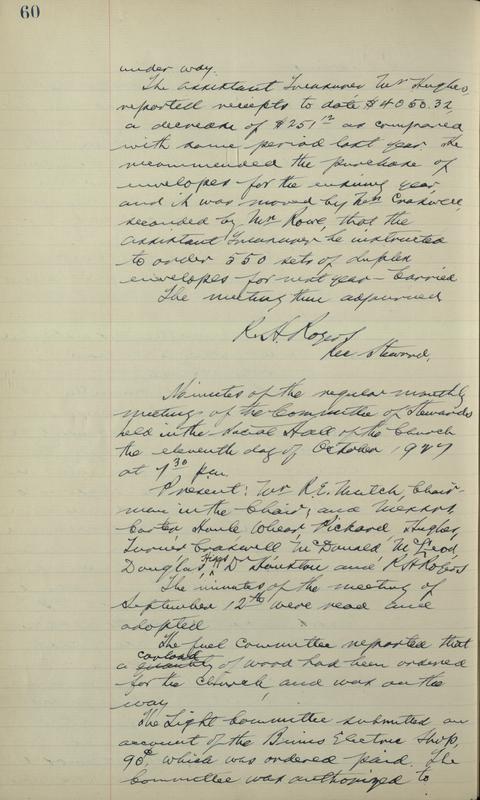 60
under way.
The Assistant Treasurer Mr Hughes,
reported receipts to date $4050.32,
a decrease of $251 as compared
with same period last year. He
recommended the purchase of
envelopes for the ensuing year
and it was moved by Mr Craswell,
seconded by Mr Rowe, that the
Assistant Treasurer be instructed
to order 550 sets of duplex
envelopes for next year - Carried
The meeting then adjourned
R.H. Rogers
Rec. Steward,
Minutes of the regular monthly
meeting of the Committee of Stewards
held in the Social Hall of the Church
the eleventh day of October 1927
at 7 30 p.m.
Present: Mr R.E. Mutch, Chair-
man in the Chair; and Messrs,
Carter Houle Wheas Pickard Hughes,
Turner Craswell McDonald McLeod,
Douglas, Dr Houston and R H Rogers
The minutes of the meeting of
September 12th were read and
adopted
The fuel Committee reported that
a carload of wood had been ordered
for the church, and was on the
way
The Light Committee submitted an
account of the Binns Electric Shop,
90¢, which was ordered paid. The
Committee was authorized to